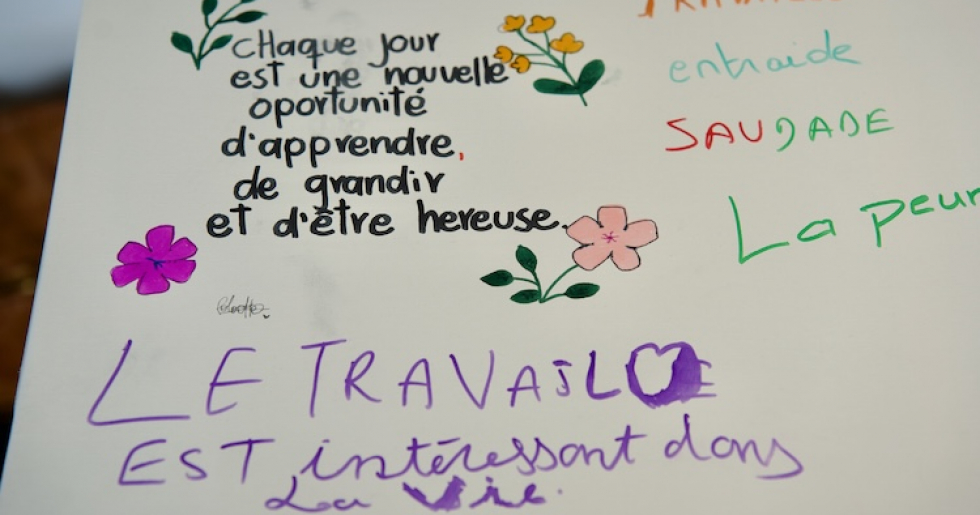 CHaque jour
est une nouvelle
oportunité
d'apprendre,
de grandir
et d'être hereuse.
entraide
SAUDADE
La peur
LE TRAVAIL
EST intéressant dans
La Vie.